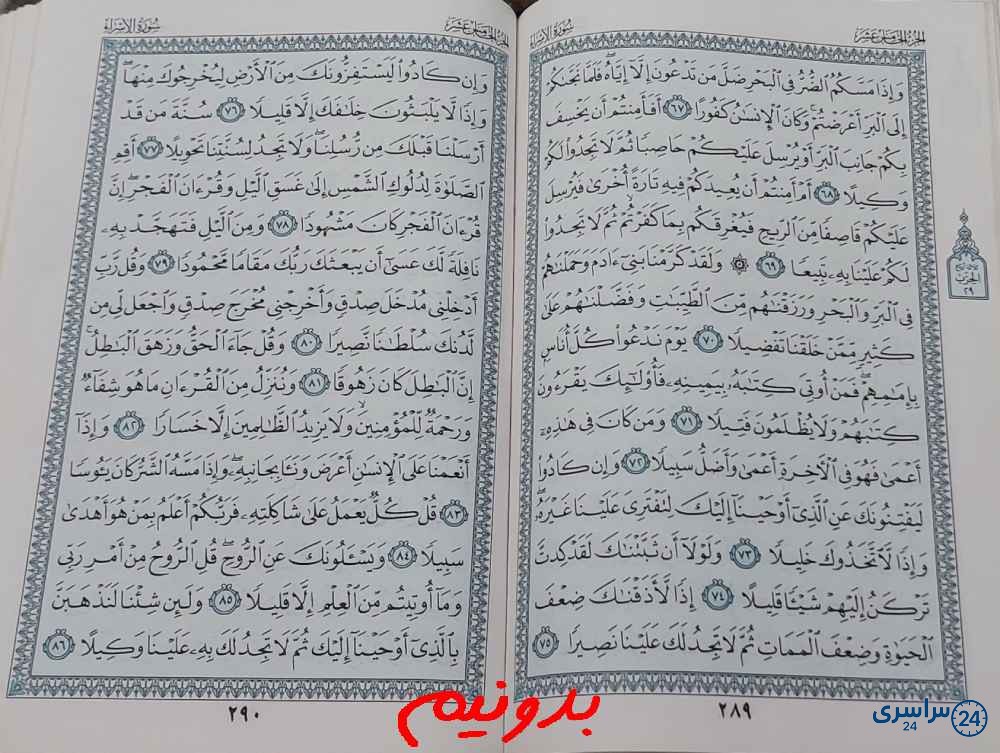 سُورَةُ الإِسْرَاءِ
الجُزْءُ الخَامِسَ عَشَرَ
وَإِذَا مَسَّكُمُ ٱلضُّرُّ فِي ٱلْبَحْرِ ضَلَّ مَن تَدْعُونَ إِلَّآ إِيَّاهُ فَلَمَّا نَجَّىٰكُمْ
إِلَى ٱلْبَرِّ أَعْرَضْتُمْ وَكَانَ ٱلْإِنسَٰنُ كَفُورًا ٦٧ أَفَأَمِنتُمْ أَن يَخْسِفَ
بِكُمْ جَانِبَ ٱلْبَرِّ أَوْ يُرْسِلَ عَلَيْكُمْ حَاصِبًا ثُمَّ لَا تَجِدُوا۟ لَكُمْ
وَكِيلًا ٦٨ أَمْ أَمِنتُمْ أَن يُعِيدَكُمْ فِيهِ تَارَةً أُخْرَىٰ فَيُرْسِلَ
عَلَيْكُمْ قَاصِفًا مِّنَ ٱلرِّيحِ فَيُغْرِقَكُم بِمَا كَفَرْتُمْ ثُمَّ لَا تَجِدُوا۟
لَكُمْ عَلَيْنَا بِهِۦ تَبِيعًا ٦٩ ۞ وَلَقَدْ كَرَّمْنَا بَنِىٓ ءَادَمَ وَحَمَلْنَٰهُمْ
فِي ٱلْبَرِّ وَٱلْبَحْرِ وَرَزَقْنَٰهُم مِّنَ ٱلطَّيِّبَٰتِ وَفَضَّلْنَٰهُمْ عَلَىٰ
كَثِيرٍ مِّمَّنْ خَلَقْنَا تَفْضِيلًا ٧٠ يَوْمَ نَدْعُوا۟ كُلَّ أُنَاسٍۭ
بِإِمَٰمِهِمْ فَمَنْ أُوتِىَ كِتَٰبَهُۥ بِيَمِينِهِۦ فَأُو۟لَٰٓئِكَ يَقْرَءُونَ
كِتَٰبَهُمْ وَلَا يُظْلَمُونَ فَتِيلًا ٧١ وَمَن كَانَ فِي هَٰذِهِۦٓ
أَعْمَىٰ فَهُوَ فِي ٱلْءَاخِرَةِ أَعْمَىٰ وَأَضَلُّ سَبِيلًا ٧٢ وَإِن كَادُوا۟
لَيَفْتِنُونَكَ عَنِ ٱلَّذِىٓ أَوْحَيْنَآ إِلَيْكَ لِتَفْتَرِىَ عَلَيْنَا غَيْرَهُۥ
وَإِذًا لَّٱتَّخَذُوكَ خَلِيلًا ٧٣ وَلَوْلَآ أَن ثَبَّتْنَٰكَ لَقَدْ كِدتَّ
تَرْكَنُ إِلَيْهِمْ شَيْـًٔا قَلِيلًا ٧٤ إِذًا لَّأَذَقْنَٰكَ ضِعْفَ
ٱلْحَيَوٰةِ وَضِعْفَ ٱلْمَمَاتِ ثُمَّ لَا تَجِدُ لَكَ عَلَيْنَا نَصِيرًا ٧٥
٢٨٩
الحِزْبُ
٢٩
سُورَةُ الإِسْرَاءِ
الجُزْءُ الخَامِسَ عَشَرَ
وَإِن كَادُوا۟ لَيَسْتَفِزُّونَكَ مِنَ ٱلْأَرْضِ لِيُخْرِجُوكَ مِنْهَا
وَإِذًا لَّا يَلْبَثُونَ خِلَٰفَكَ إِلَّا قَلِيلًا ٧٦ سُنَّةَ مَن قَدْ
أَرْسَلْنَا قَبْلَكَ مِن رُّسُلِنَا وَلَا تَجِدُ لِسُنَّتِنَا تَحْوِيلًا ٧٧ أَقِمِ
ٱلصَّلَوٰةَ لِدُلُوكِ ٱلشَّمْسِ إِلَىٰ غَسَقِ ٱلَّيْلِ وَقُرْءَانَ ٱلْفَجْرِ إِنَّ
قُرْءَانَ ٱلْفَجْرِ كَانَ مَشْهُودًا ٧٨ وَمِنَ ٱلَّيْلِ فَتَهَجَّدْ بِهِۦ
نَافِلَةً لَّكَ عَسَىٰٓ أَن يَبْعَثَكَ رَبُّكَ مَقَامًا مَّحْمُودًا ٧٩ وَقُل رَّبِّ
أَدْخِلْنِى مُدْخَلَ صِدْقٍ وَأَخْرِجْنِى مُخْرَجَ صِدْقٍ وَٱجْعَل لِّى مِن
لَّدُنكَ سُلْطَٰنًا نَّصِيرًا ٨٠ وَقُلْ جَآءَ ٱلْحَقُّ وَزَهَقَ ٱلْبَٰطِلُ
إِنَّ ٱلْبَٰطِلَ كَانَ زَهُوقًا ٨١ وَنُنَزِّلُ مِنَ ٱلْقُرْءَانِ مَا هُوَ شِفَآءٌ
وَرَحْمَةٌ لِّلْمُؤْمِنِينَ وَلَا يَزِيدُ ٱلظَّٰلِمِينَ إِلَّا خَسَارًا ٨٢ وَإِذَآ
أَنْعَمْنَا عَلَى ٱلْإِنسَٰنِ أَعْرَضَ وَنَـَٔا بِجَانِبِهِۦ وَإِذَا مَسَّهُ ٱلشَّرُّ كَانَ يَـُٔوسًا
٨٣ قُلْ كُلٌّ يَعْمَلُ عَلَىٰ شَاكِلَتِهِۦ فَرَبُّكُمْ أَعْلَمُ بِمَنْ هُوَ أَهْدَىٰ
سَبِيلًا ٨٤ وَيَسْـَٔلُونَكَ عَنِ ٱلرُّوحِ قُلِ ٱلرُّوحُ مِنْ أَمْرِ رَبِّى
وَمَآ أُوتِيتُم مِّنَ ٱلْعِلْمِ إِلَّا قَلِيلًا ٨٥ وَلَئِن شِئْنَا لَنَذْهَبَنَّ
بِٱلَّذِىٓ أَوْحَيْنَآ إِلَيْكَ ثُمَّ لَا تَجِدُ لَكَ بِهِۦ عَلَيْنَا وَكِيلًا ٨٦
٢٩٠
بدونیم
سراسری 24
24